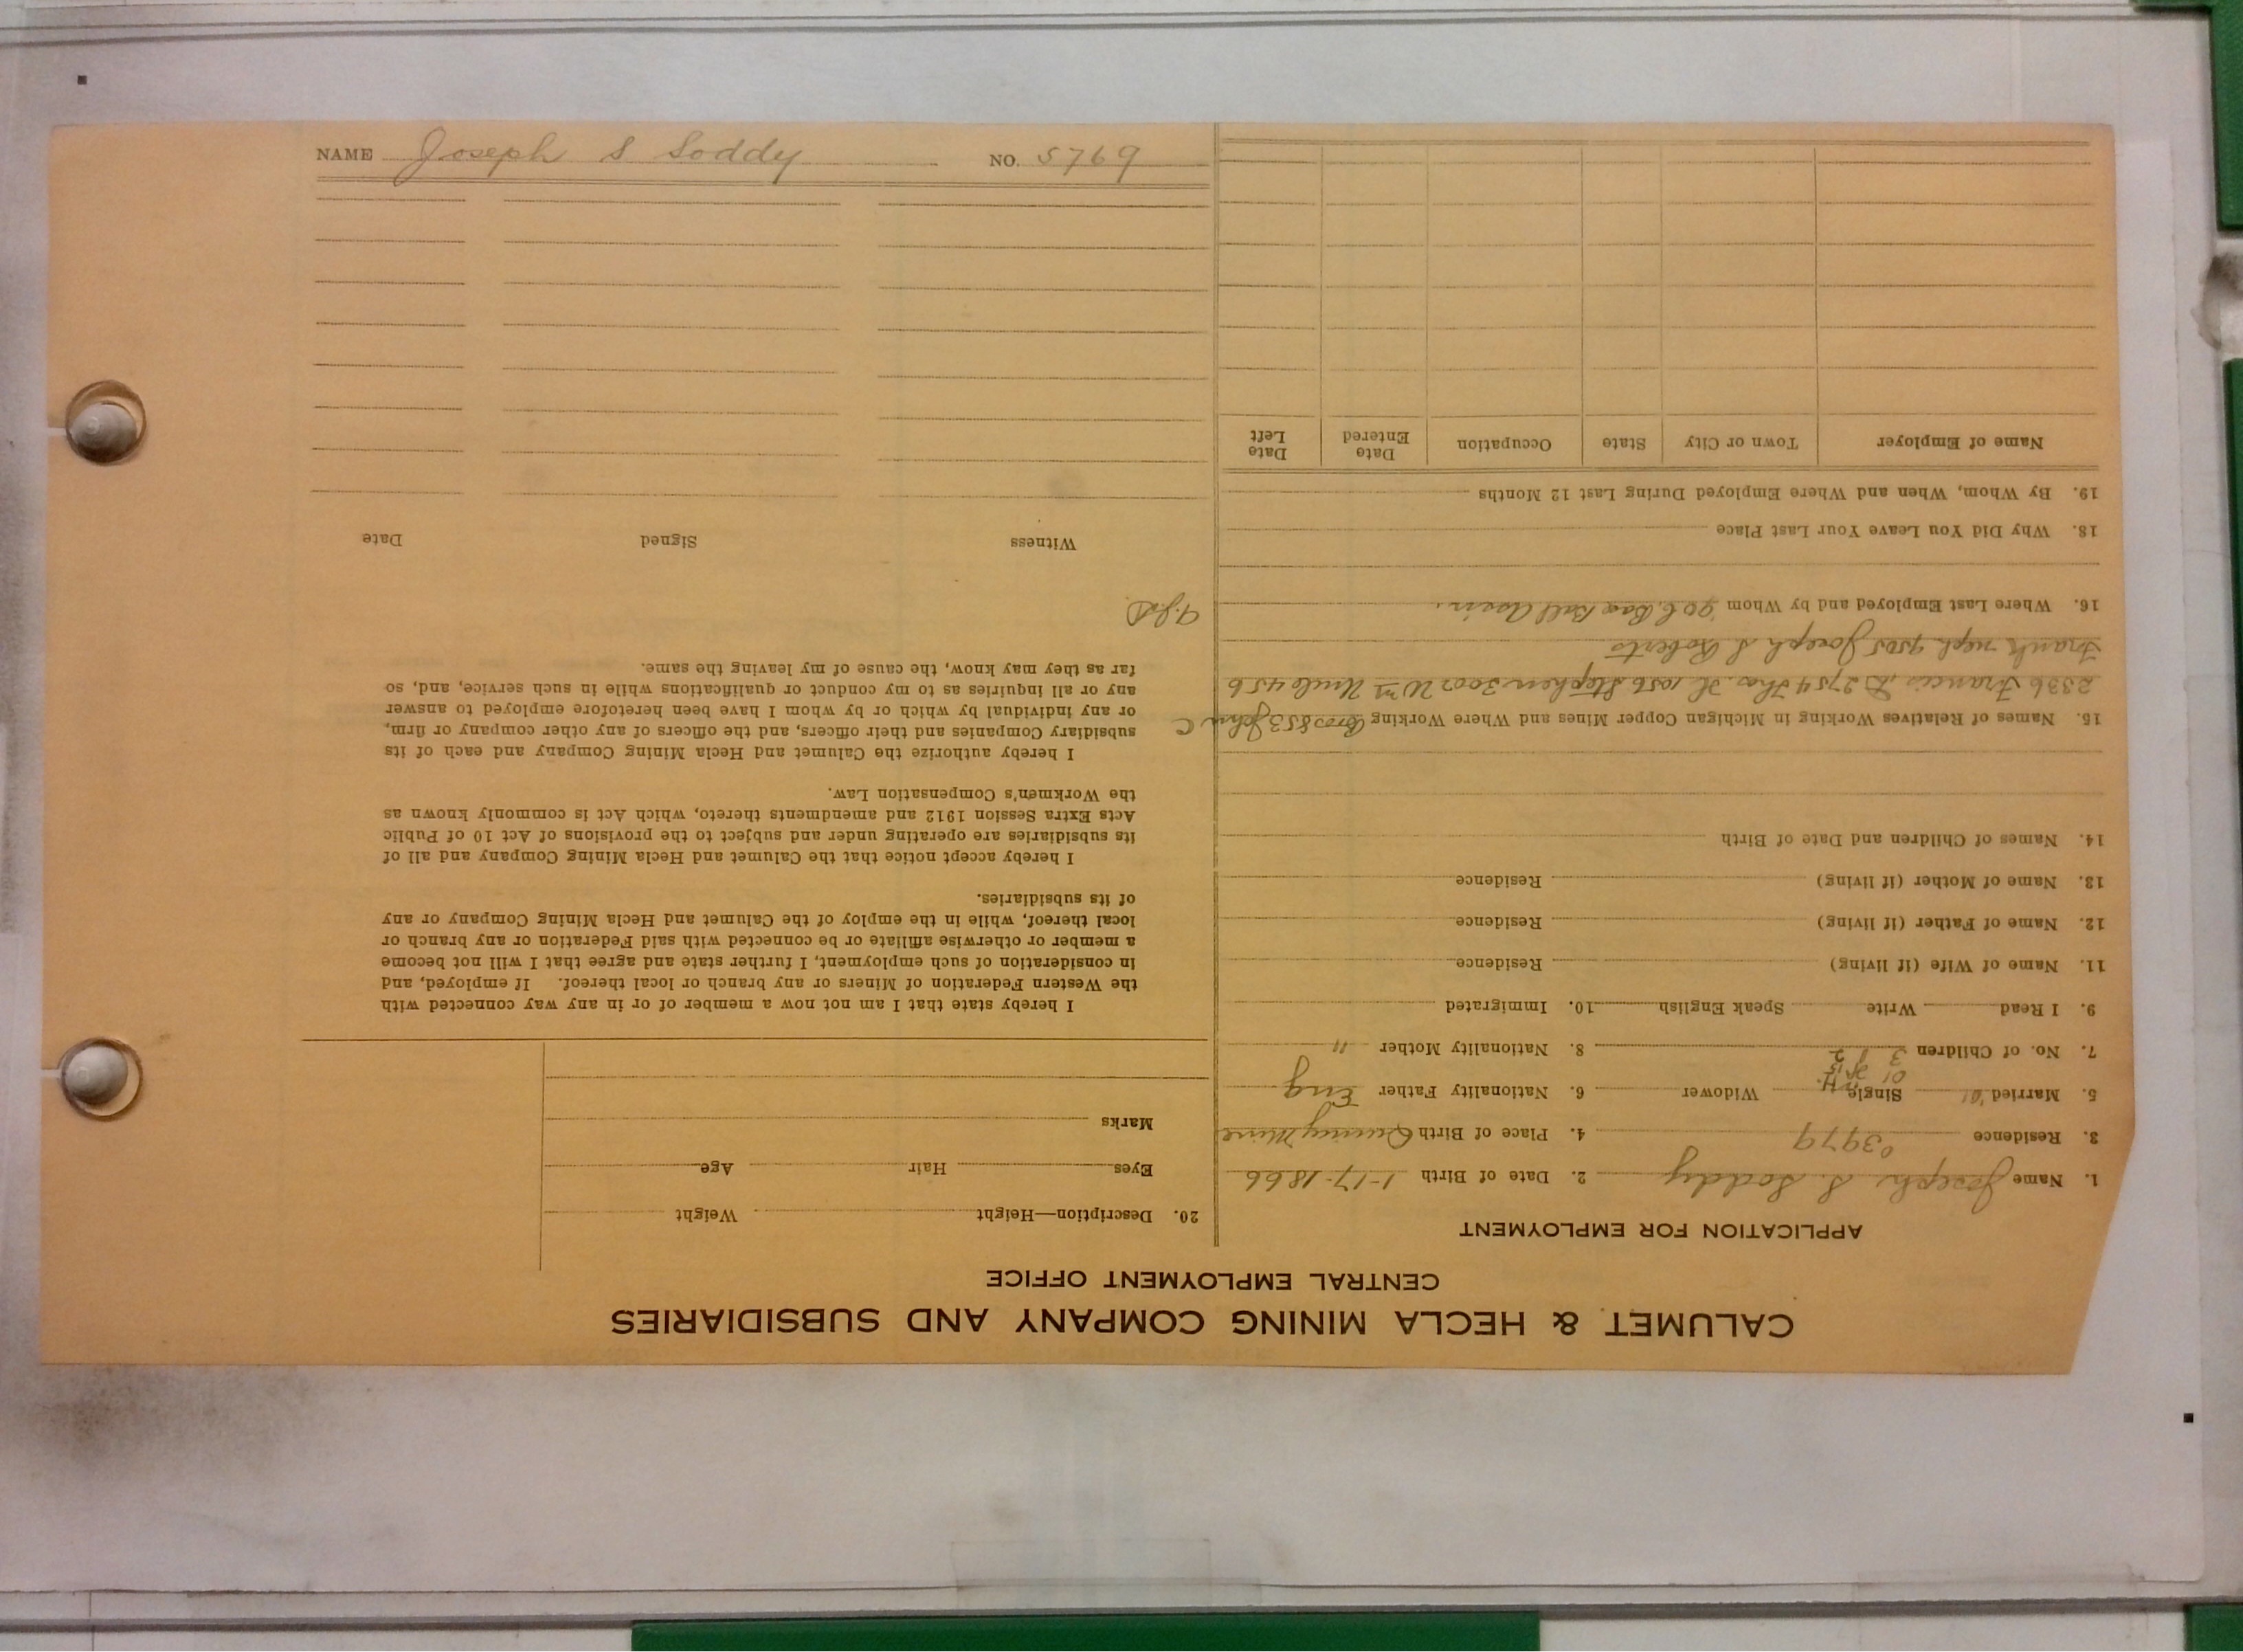 NAME Joseph S Soddy NO. 5769
CALUMET & HECLA MINING COMPANY AND SUBSIDIARIES
CENTRAL EMPLOYMENT OFFICE
APPLICATION FOR EMPLOYMENT
1. Name Joseph S. Soddy 2. Date of Birth 1-17-1866
3. Residence 03979 4. Place of Birth Quincy Mine
5. Married '01 Single Widower 6. Nationality Father Eng
7. No. of Children 3 8. Nationality Mother "
9. I Read Write Speak English 10. Immigrated
11. Name of Wife (if living) Residence
12. Name of Father (if living) Residence
13. Name of Mother (if living) Residence
14. Names of Children and Date of Birth
15. Names of Relatives Working in Michigan Copper Mines and Where Working Bros 853 John C
2336 Francis D 2754 Thos. H. 1056 Stephen 3002 Wm Uncle 456
Frank neph 9505 Joseph S Roberts
16. Where Last Employed and by Whom Base Ball Assin.
18. Why Did You Leave Your Last Place
19. By Whom, When and Where Employed During Last 12 Months
Name of Employer Town or City State Occupation Date Entered Date Left
20. Description—Height Weight
Eyes Hair Age
Marks
I hereby state that I am not now a member of or in any way connected with
the Western Federation of Miners or any branch or local thereof. If employed, and
in consideration of such employment, I further state and agree that I will not become
a member or otherwise affiliate or be connected with said Federation or any branch or
local thereof, while in the employ of the Calumet and Hecla Mining Company or any
of its subsidiaries.
I hereby accept notice that the Calumet and Hecla Mining Company and all of
its subsidiaries are operating under and subject to the provisions of Act 10 of Public
Acts Extra Session 1912 and amendments thereto, which Act is commonly known as
the Workmen's Compensation Law.
I hereby authorize the Calumet and Hecla Mining Company and each of its
subsidiary Companies and their officers, and the officers of any other company or firm,
or any individual by which or by whom I have been heretofore employed to answer
any or all inquiries as to my conduct or qualifications while in such service, and, so
far as they may know, the cause of my leaving the same.
Witness Signed Date